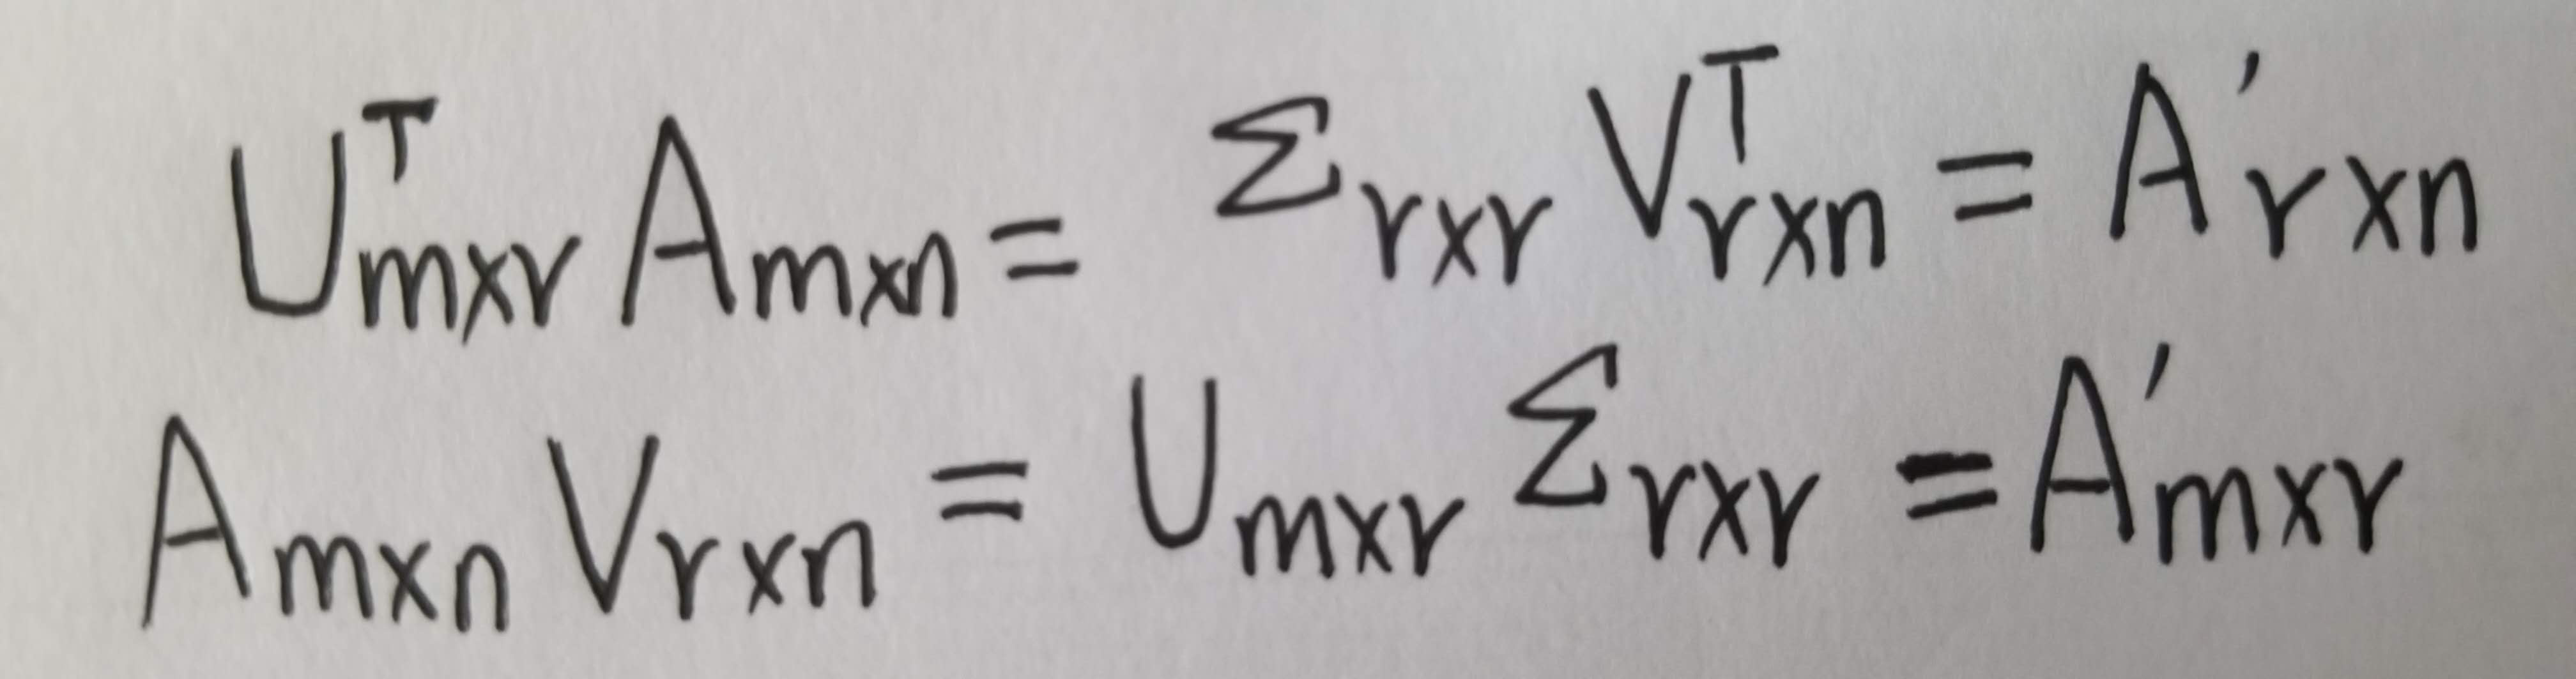 U^T_{m×r} A_{m×n} = Σ_{r×r} V^T_{r×n} = A'_{r×n}
A_{m×n} V_{r×n} = U_{m×r} Σ_{r×r} = A'_{m×r}